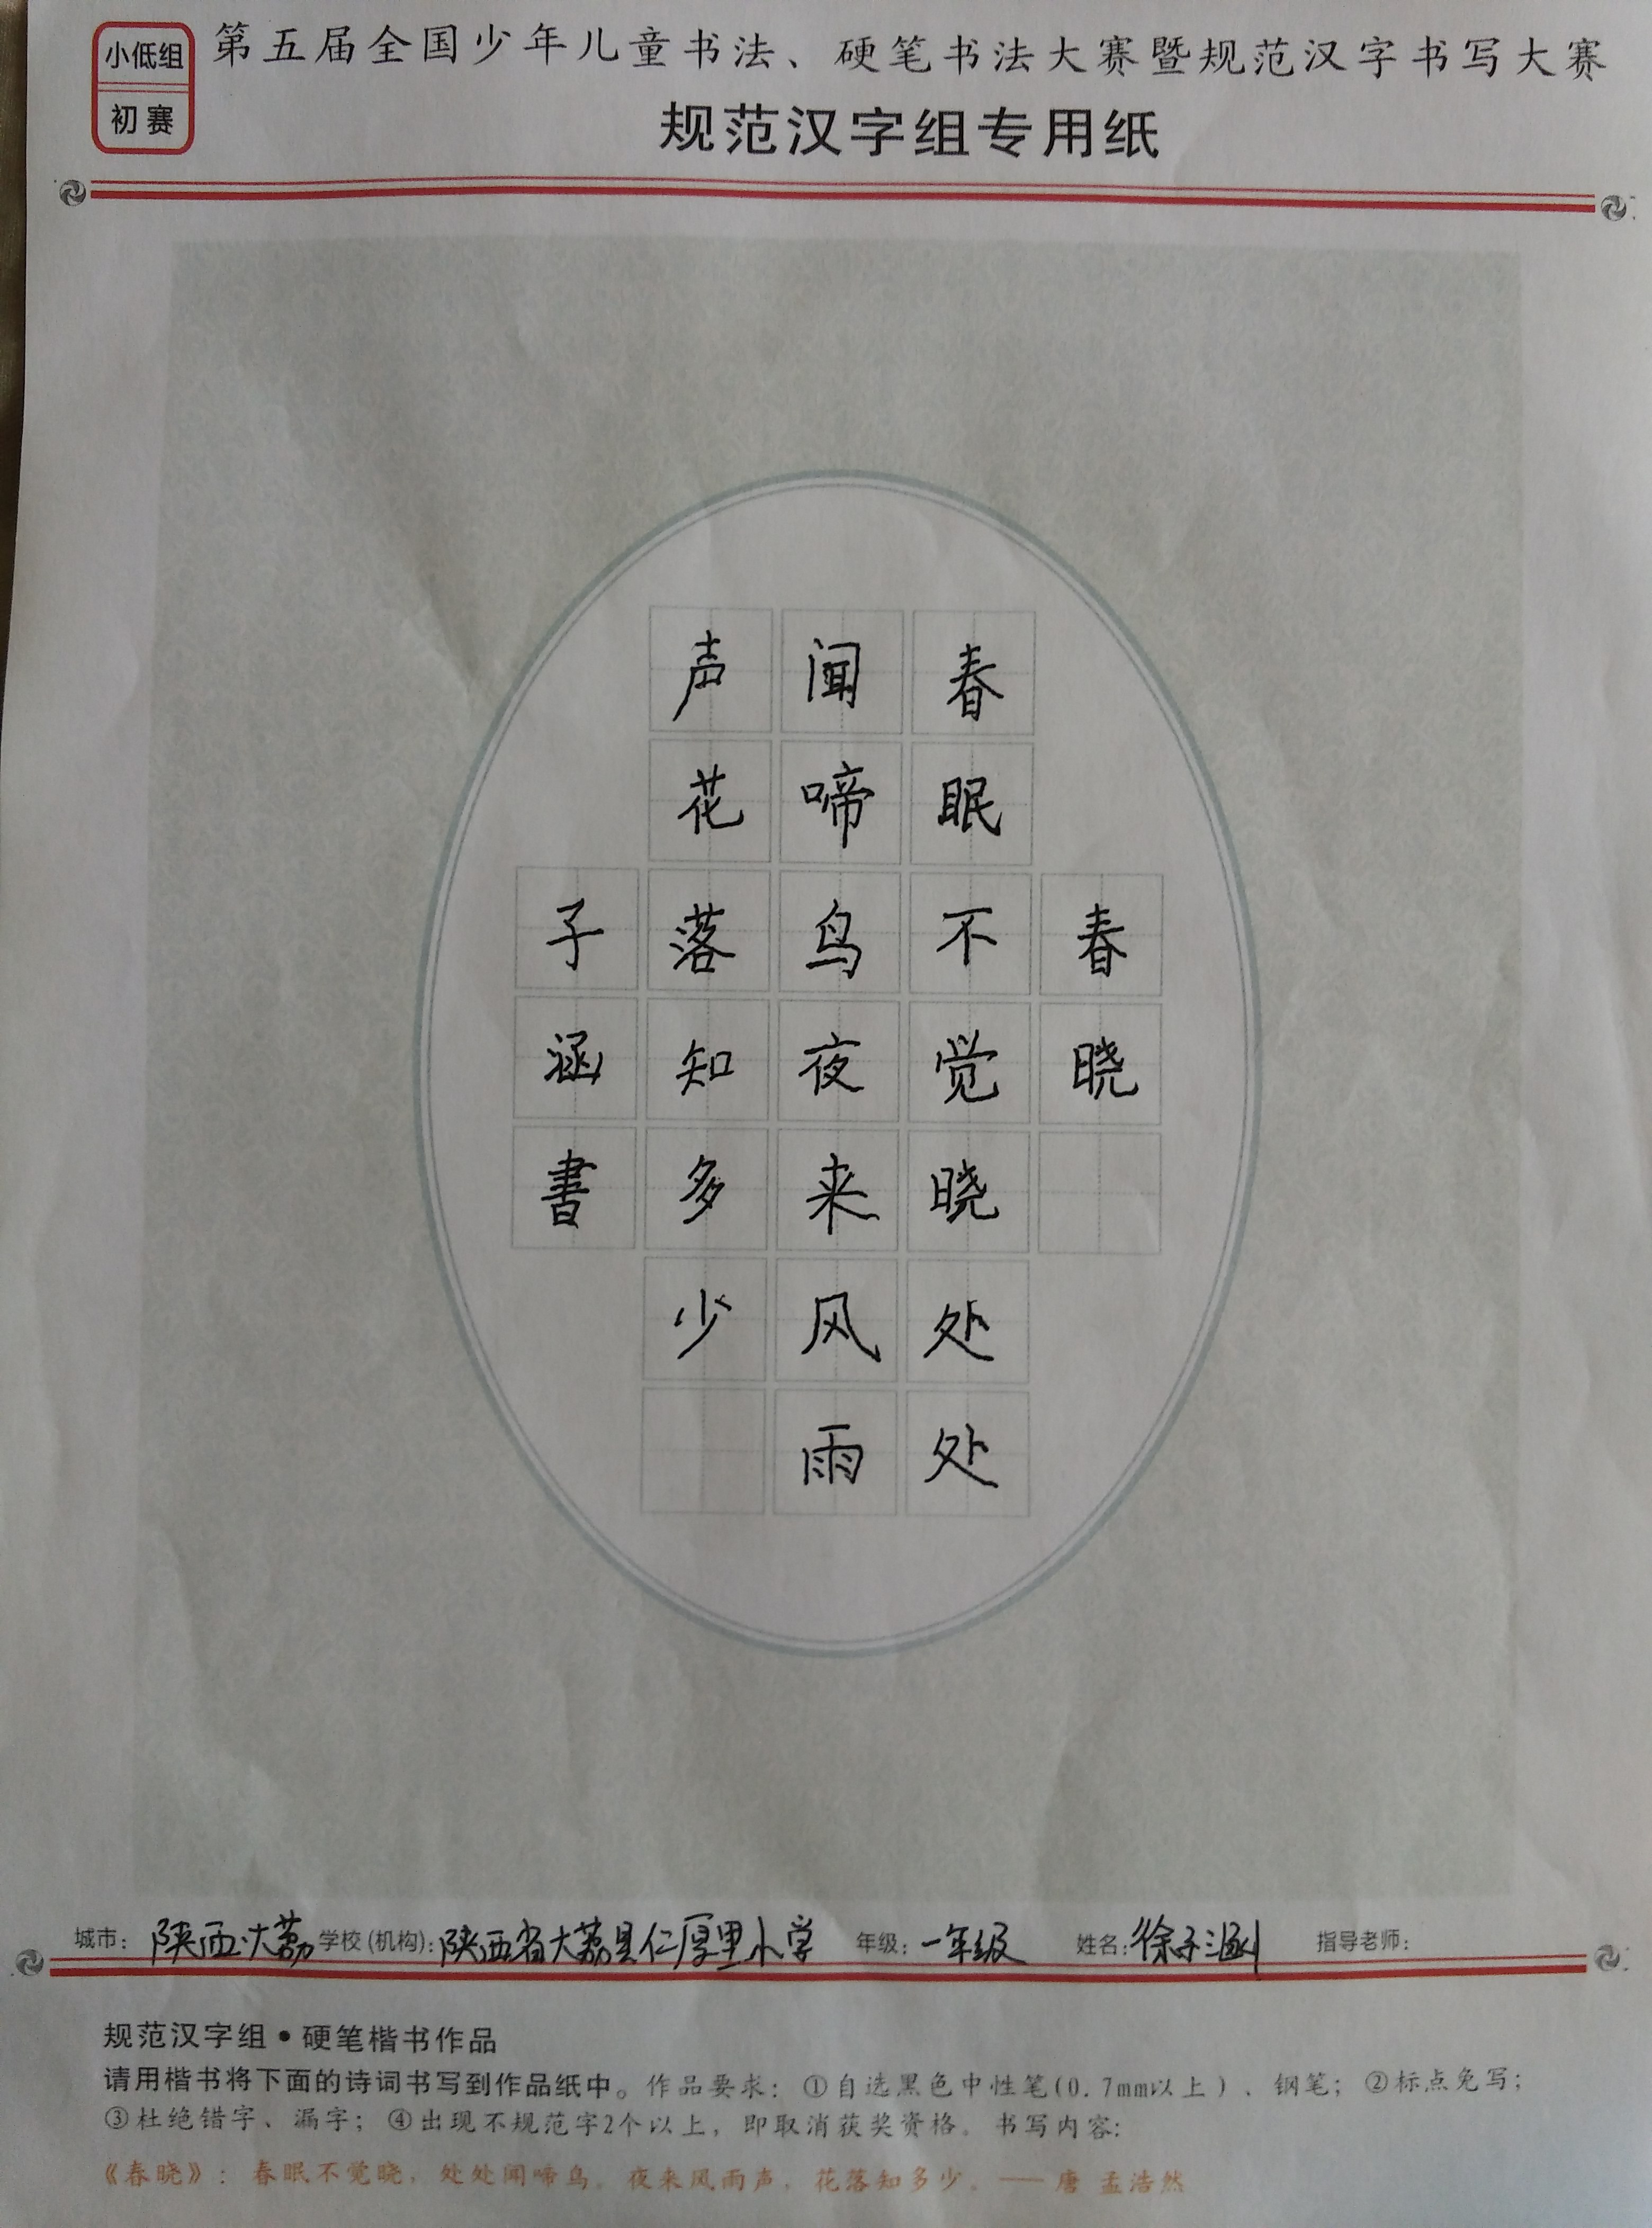 小低组
初赛
第五届全国少年儿童书法、硬笔书法大赛暨规范汉字书写大赛
规范汉字组专用纸
春晓
春眠不觉晓处处
闻啼鸟夜来风雨
声花落知多少
子涵書
城市：陕西大荔 学校(机构)：陕西省大荔县仁厚里小学 年级：一年级 姓名：徐子涵 指导老师：
规范汉字组•硬笔楷书作品
请用楷书将下面的诗词书写到作品纸中。作品要求：①自选黑色中性笔(0.7mm以上)、钢笔；②标点免写；
③杜绝错字、漏字；④出现不规范字2个以上，即取消获奖资格。书写内容:
《春晓》：春眠不觉晓，处处闻啼鸟。夜来风雨声，花落知多少。——唐 孟浩然